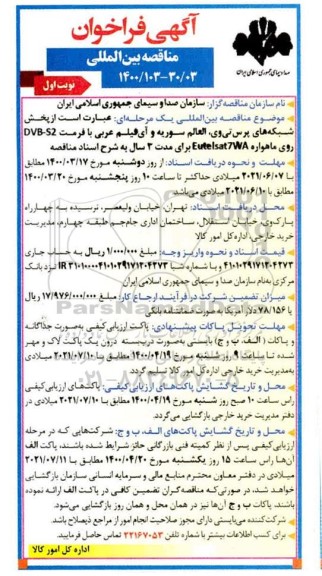 آگهی فراخوان
مناقصه بین‌المللی
۱۴۰۰/۱۰۳-۳۰/۰۳
نوبت اول
صدا و سیمای جمهوری اسلامی ایران
نام سازمان مناقصه‌گزار: سازمان صدا و سیمای جمهوری اسلامی ایران
موضوع مناقصه بین‌المللی یک مرحله‌ای: عبارت است از پخش
شبکه‌های پرس‌تی‌وی، العالم سوریه و آی‌فیلم عربی با فرمت DVB-S2
روی ماهواره Eutelsat7WA برای مدت ۳ سال به شرح اسناد مناقصه
مهلت و نحوه دریافت اسناد: از روز دوشنبه مورخ ۱۴۰۰/۰۳/۱۷ مطابق
با ۲۰۲۱/۰۶/۰۷ میلادی حداکثر تا ساعت ۱۰ روز پنجشنبه مورخ ۱۴۰۰/۰۳/۲۰
مطابق با ۲۰۲۱/۰۶/۱۰ میلادی می‌باشد
محل دریافت اسناد: تهران، خیابان ولیعصر، نرسیده به چهارراه
پارک‌وی، خیابان استقلال، ساختمان اداری جام‌جم طبقه چهارم، مدیریت
خرید خارجی، اداره کل امور کالا
قیمت اسناد و نحوه واریز وجه: مبلغ ۱/۰۰۰/۰۰۰ ریال به حساب جاری
و با شماره شبا نزد بانک
مرکزی به‌نام سازمان صدا و سیمای جمهوری اسلامی ایران
میزان تضمین شرکت در فرآیند ارجاع کار: مبلغ ۱۷/۹۷۶/۰۰۰/۰۰۰ ریال
یا ۷۸/۱۵۶ دلار آمریکا به‌صورت ضمانتنامه بانکی
مهلت تحویل پاکات پیشنهادی: پاکت ارزیابی کیفی به‌صورت جداگانه
و پاکات (الف، ب و ج) بایستی به‌صورت دربسته درون یک پاکت لاک و مهر
شده تا ساعت ۹ روز شنبه مورخ ۱۴۰۰/۰۴/۱۹ مطابق با ۲۰۲۱/۰۷/۱۰ میلادی
به‌مدیریت خرید خارجی اداره کل امور کالا تسلیم گردد
محل و تاریخ گشایش پاکت‌های ارزیابی کیفی: پاکت‌های ارزیابی کیفی
راس ساعت ۱۰ صبح روز شنبه مورخ ۱۴۰۰/۰۴/۱۹ مطابق با ۲۰۲۱/۰۷/۱۰ میلادی در
دفتر مدیریت خرید خارجی بازگشایی می‌گردد.
محل و تاریخ گشایش پاکت‌های الف، ب و ج: شرکت‌هایی که در مرحله
ارزیابی کیفی پس از نظر کمیته فنی بازرگانی حائز شرایط شده باشند، پاکت الف
آن‌ها راس ساعت ۱۵ روز یکشنبه مورخ ۱۴۰۰/۰۴/۲۰ مطابق با ۲۰۲۱/۰۷/۱۱
میلادی در دفتر معاون محترم منابع مالی و سرمایه انسانی سازمان بازگشایی
خواهد شد، در صورتی‌که مناقصه‌گران تضمین کافی در پاکت الف ارائه نموده
باشند، پاکات ب و ج آن‌ها نیز در همان محل و همان روز بازگشایی می‌شود.
شرکت‌کننده می‌بایستی دارای مجوز صلاحیت انجام امور از مراجع ذیصلاح باشد.
برای کسب اطلاعات بیشتر با شماره تلفن ۲۲۱۶۷۰۵۳ تماس حاصل فرمایید.
اداره کل امور کالا